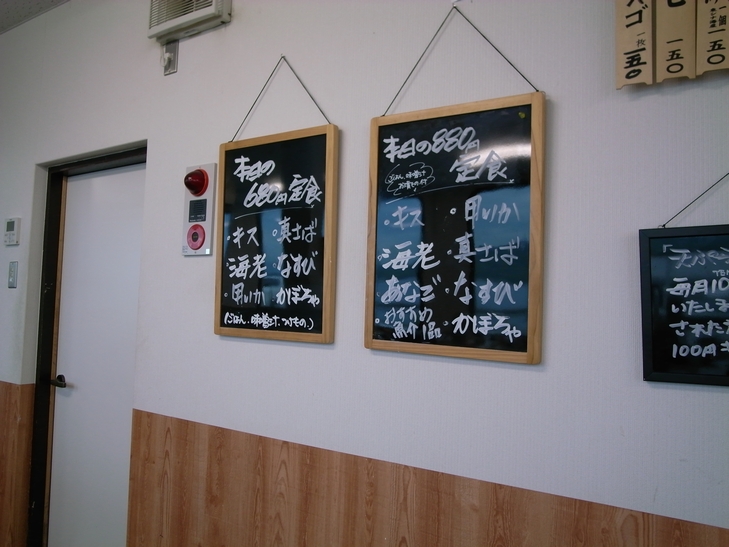 本日の
680円定食
・キス ・真さば
・海老 ・なすび
・甲いか ・かぼちゃ
(ごはん、味噌汁、つけもの。)
本日の880円
定食
ごはん、味噌汁
・キス ・甲いか
・海老 ・真さば
・あなご ・なすび
・おすすめ
魚介1品 ・かぼちゃ
ゴ 一枚 一五〇
一五〇
一個 一五〇
毎月10
いたしま
された
100円